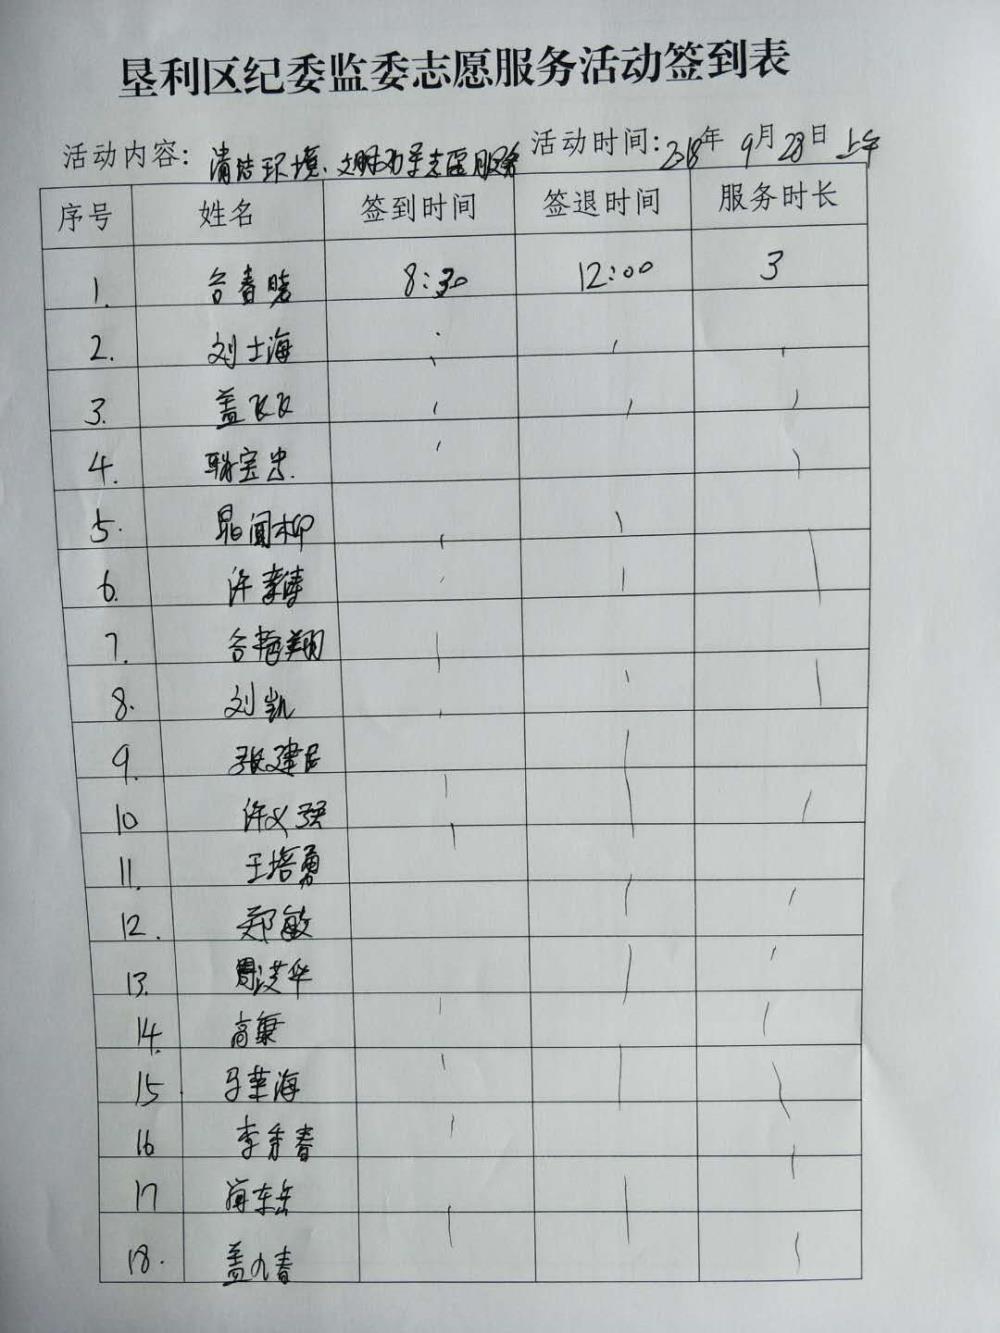 垦利区纪委监委志愿服务活动签到表
活动内容: 清洁环境、文明劝导志愿服务 活动时间: 2018年 9月28日 上午
序号 姓名 签到时间 签退时间 服务时长
1. 春晓 8:30 12:00 3
2. 刘士海
3. 盖
4. 宝忠
5.
6. 许
7. 翔
8. 刘凯
9. 张建
10 许义强
11. 王培勇
12. 郑敏
13. 周洪华
14. 高
15 海
16 李秀春
17 东岳
18. 盖九春